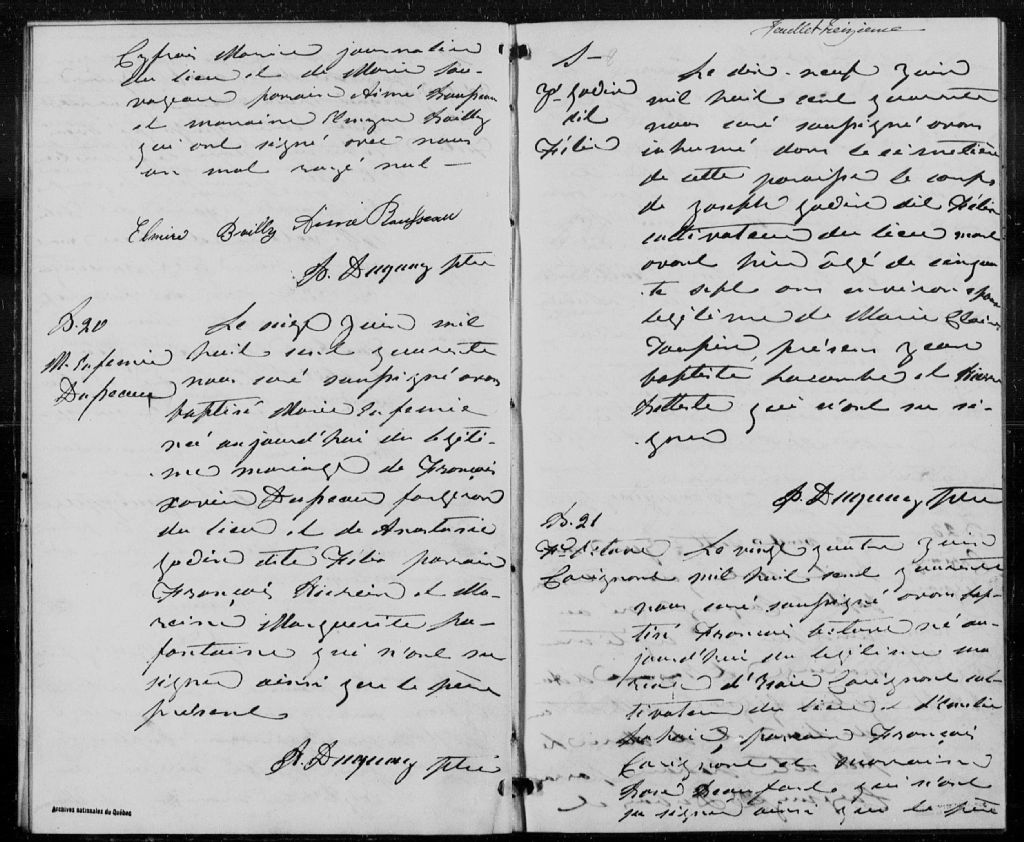 Cyfroi Morin journalier
du lieu et de Marie Sau-
vageau parain Aimé Rousseau
et maraine Bailly
qui ont signé avec nous
un mot rayé nul —
Elmire Bailly Aimé Rousseau
Duguay ptre
B. 20
M. Eufemie
Dupeau
Le Juin mil
huit cent quarente
nous curé soussigné avons
baptisé Marie Eufemie
né aujourd'hui du légiti-
me mariage de François
xavier Dupeau forgeron
du lieu et de Anastasie
Godin dite Félix parain
François et Ma-
reine Marguerite La-
fontaine qui n'ont su
signer ainsi que le père
présent
Duguay ptre
Archives nationales du Québec
Feuillet treizieme
S—
Jh Godin
dit
Félix
Le dix-neuf Juin
mil huit cent quarente
nous curé soussigné avons
inhumé dans le cimetière
de cette paroisse le corps
de Joseph Godin dit Félix
cultivateur du lieu mort
avant hier âgé de cinquan
te sept ans environ epoux
legitime de Marie Claire
Toupin, présens Jean
baptiste Lacombe et
qui n'ont su si-
gner
Duguay ptre
B. 21
Carignant
Le vingt quatre Juin
mil huit cent quarente
nous curé soussigné avons bap-
tisé François né au-
jourd'hui du legitime ma
riage d'Isaie Carignant cul-
tivateur du lieu et d'Emilie
parain François
Carignant et maraine
Rose Beaufort qui n'ont
su signer ainsi que le père